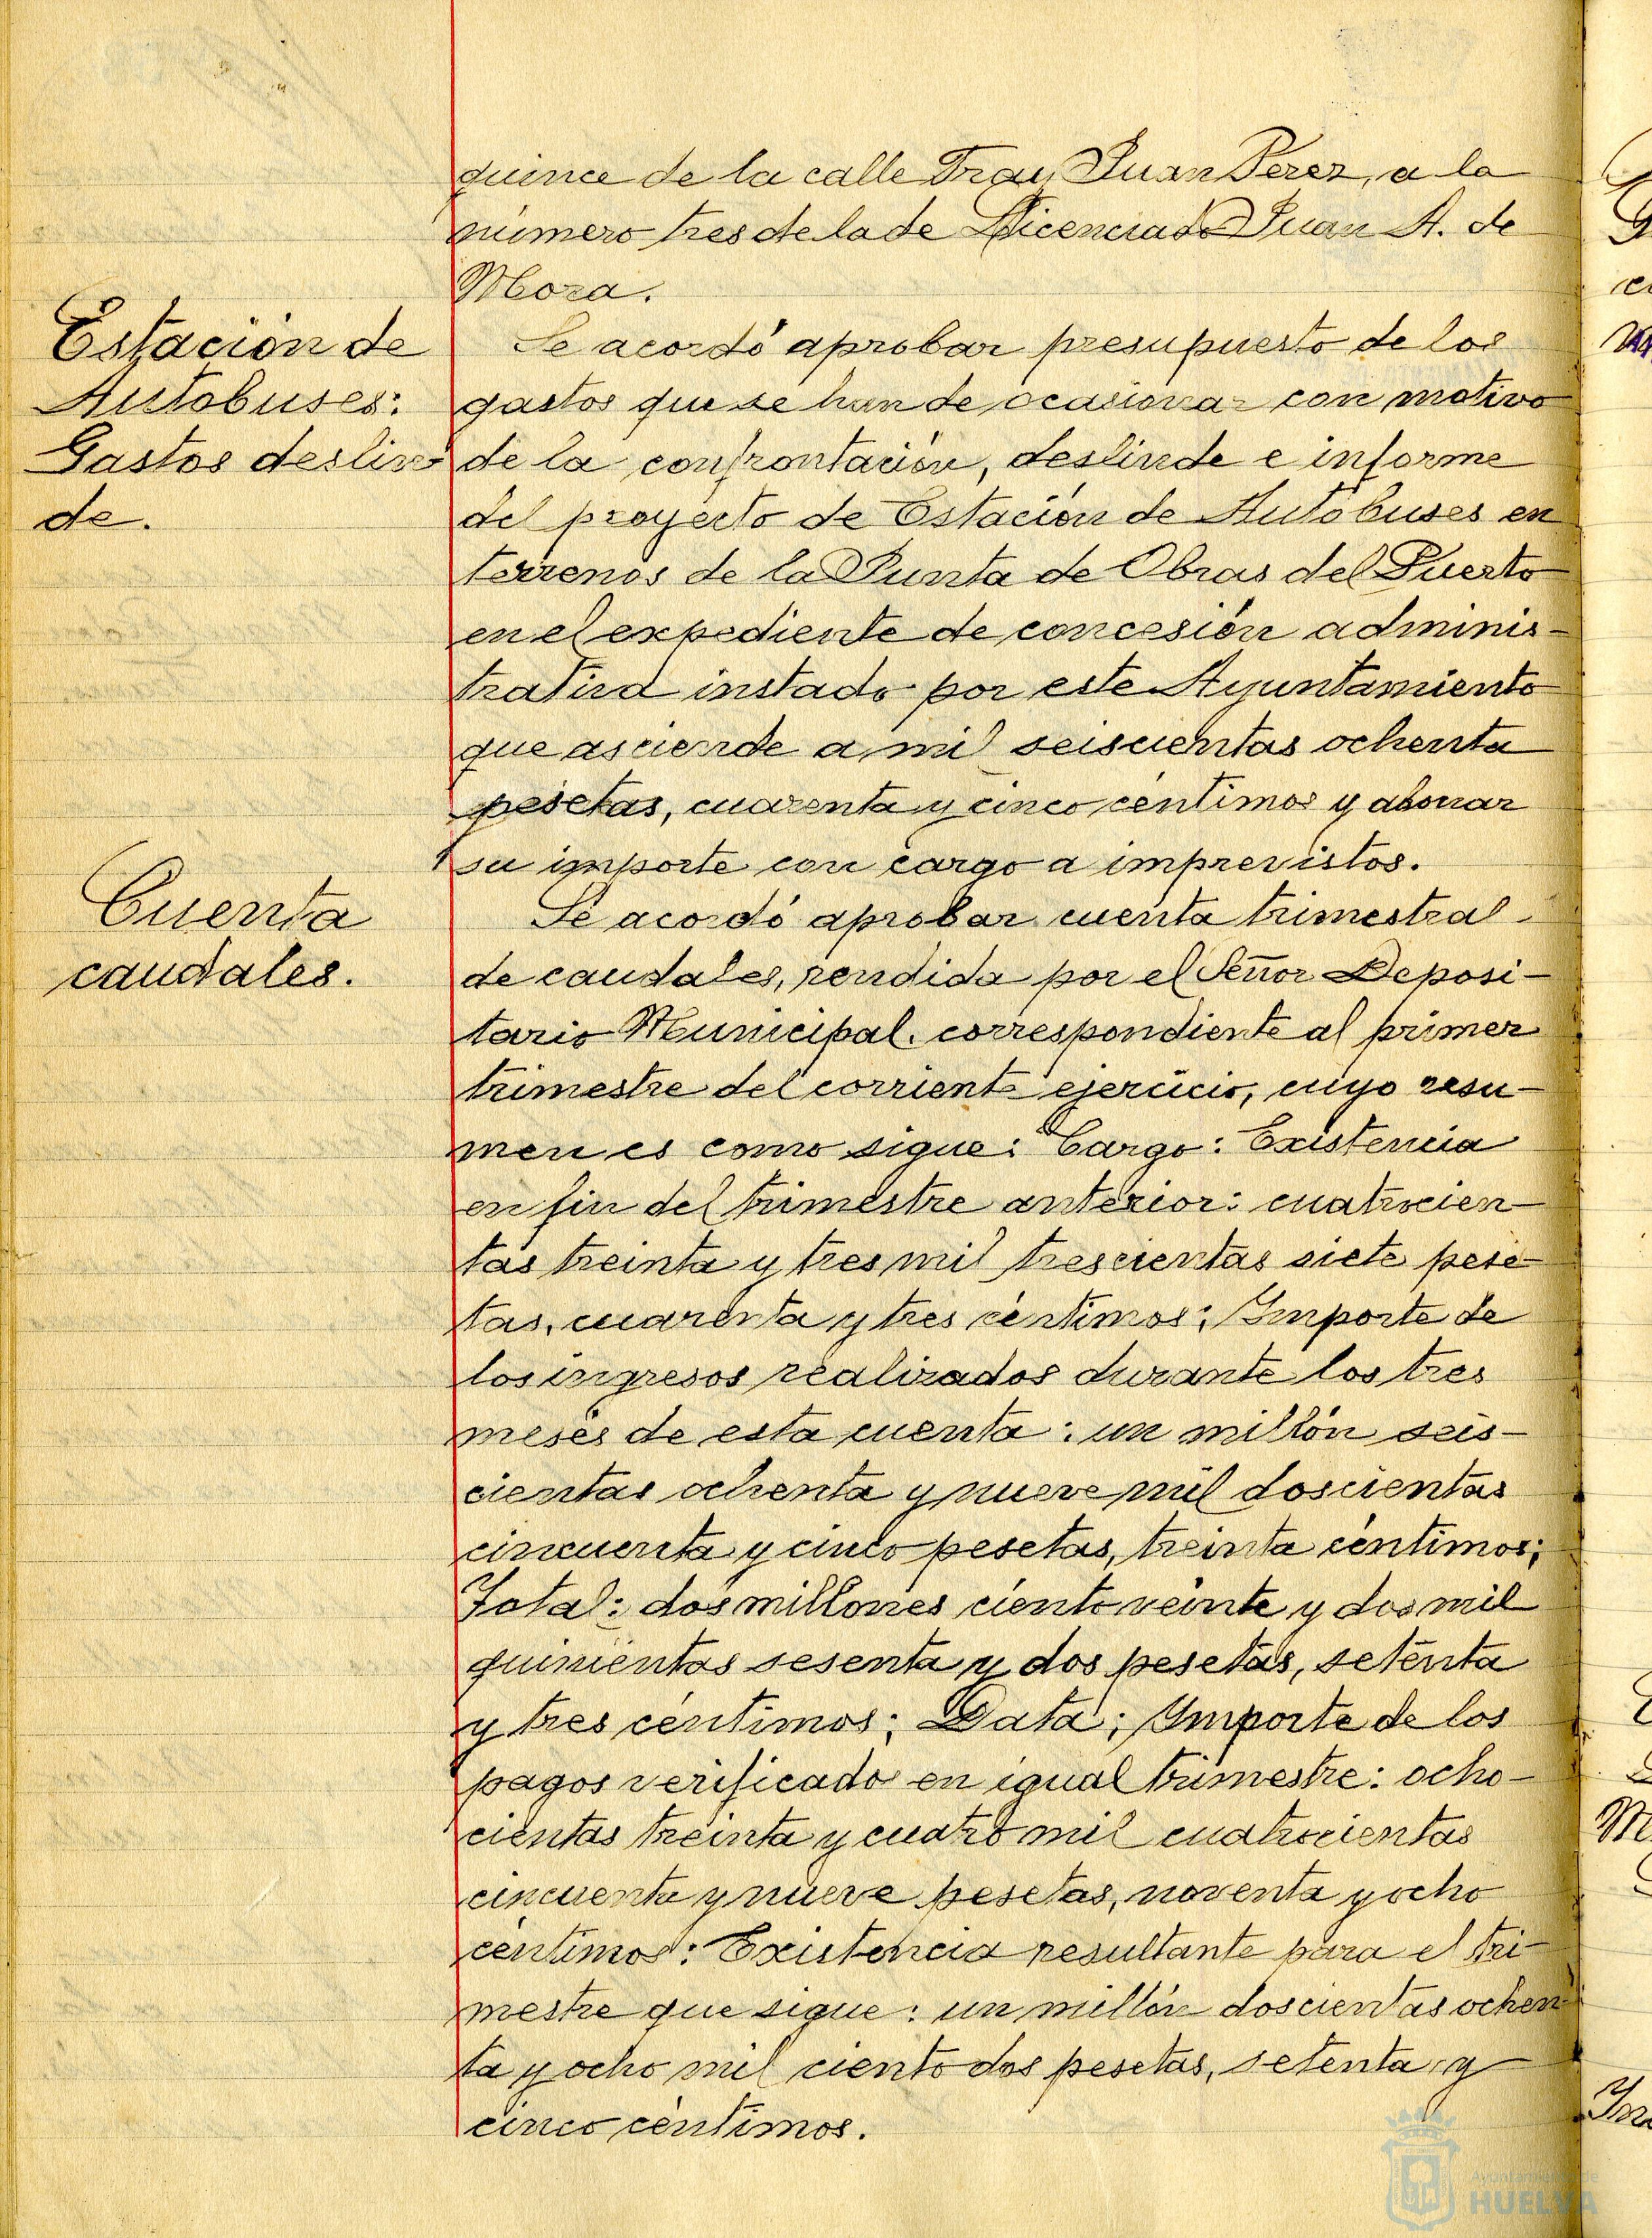 quince de la calle Fray Juan Perez, a la
número tres de la de Licenciado Juan A. de
Mora.
Estación de
Autobuses:
Gastos deslin
de.
Se acordó aprobar presupuesto de los
gastos que se han de ocasionar con motivo
de la confrontación, deslinde e informe
del proyecto de Estación de Autobuses en
terrenos de la Junta de Obras del Puerto
en el expediente de concesión adminis-
trativa instado por este Ayuntamiento
que asciende a mil seiscientas ochenta
pesetas, cuarenta y cinco centimos y abonar
su importe con cargo a imprevistos.
Cuenta
caudales.
Se acordó aprobar cuenta trimestral
de caudales, rendida por el Señor Deposi-
tario Municipal. correspondiente al primer
trimestre del corriente ejercicio, cuyo resu-
men es como sigue: Cargo: Existencia
en fin del trimestre anterior: cuatrocien-
tas treinta y tres mil trescientas siete pese-
tas, cuarenta y tres céntimos; Importe de
los ingresos realizados durante los tres
meses de esta cuenta: un millón seis-
cientas ochenta y nueve mil doscientas
cincuenta y cinco pesetas, treinta céntimos;
Total: dos millones ciento veinte y dos mil
quinientas sesenta y dos pesetas, setenta
y tres céntimos; Data; Importe de los
pagos verificados en igual trimestre: ocho-
cientas treinta y cuatro mil cuatrocientas
cincuenta y nueve pesetas, noventa y ocho
céntimos: Existencia resultante para el tri-
mestre que sigue: un millón doscientas ochen-
ta y ocho mil ciento dos pesetas, setenta y
cinco céntimos.
Ayuntamiento de
HUELVA